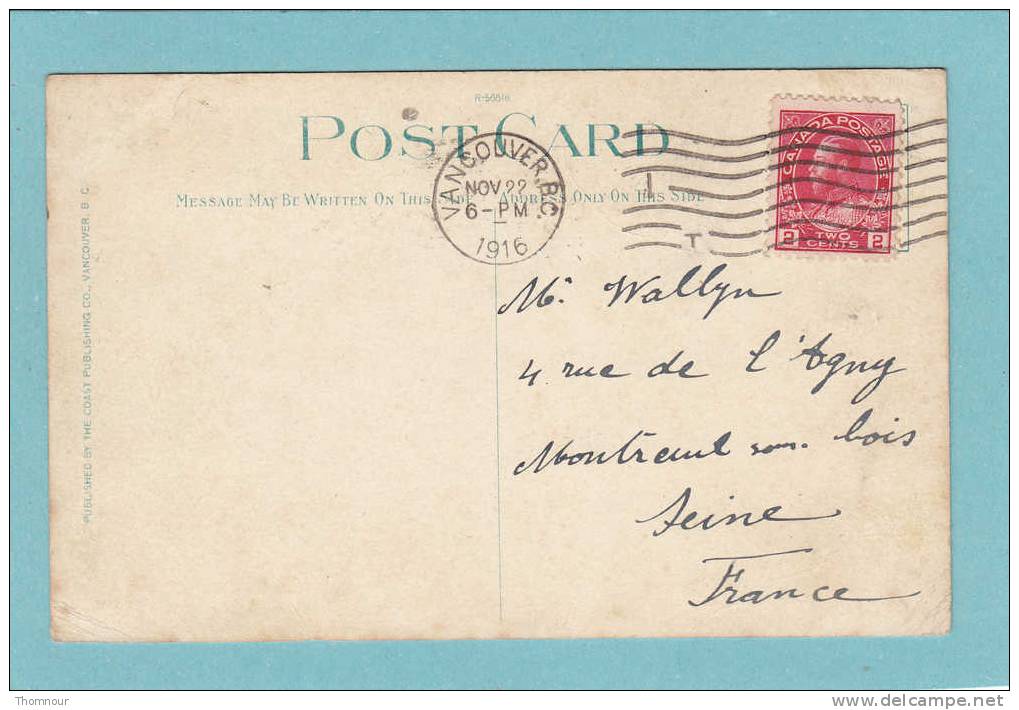 R-56618
POST CARD
MESSAGE MAY BE WRITTEN ON THIS SIDE ADDRESS ONLY ON THIS SIDE
VANCOUVER, B.C.
NOV 22
6-PM
1916
CANADA POSTAGE
2 TWO CENTS 2
1
T
Mr. Wallyn
4 rue de l'Agny
Montreuil sous bois
Seine
France
PUBLISHED BY THE COAST PUBLISHING CO., VANCOUVER, B. C.
Thomnour
www.delcampe.net